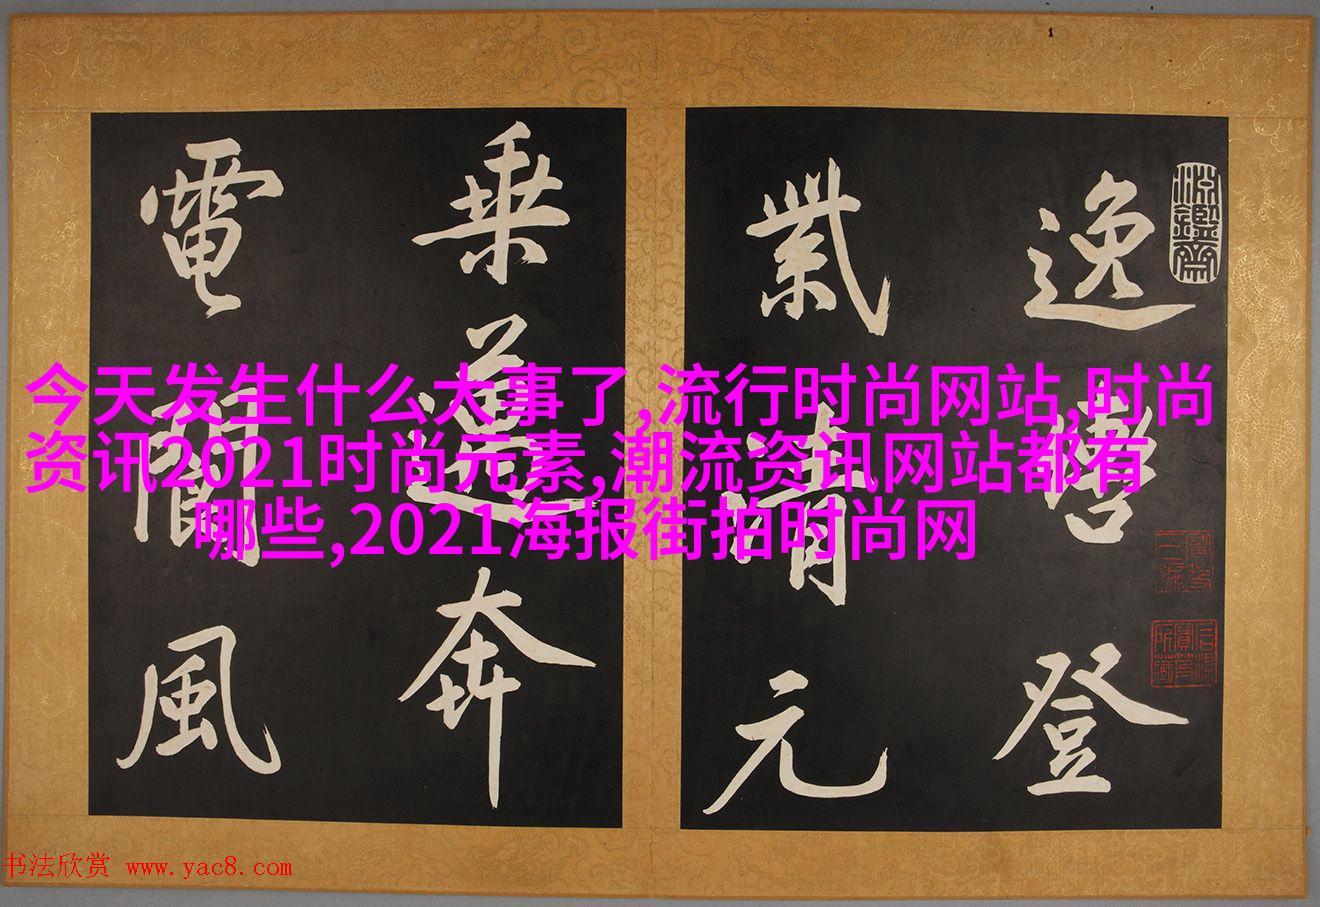 逸轡登
紫清元
乘邁奔
電閬風
今天发生什么大事了,流行时尚网站,时尚
资讯2021时尚元素,潮流资讯网站都有
哪些,2021海报街拍时尚网
书法欣赏 www.yac8.com